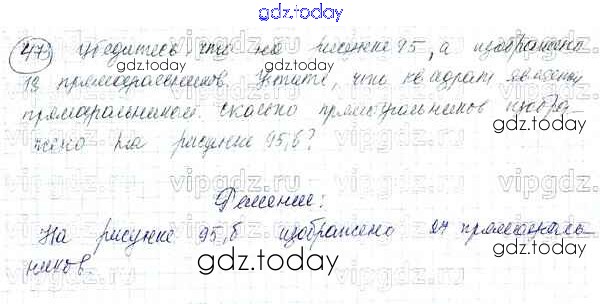 gdz.today
473 Убедитесь, что на рисунке 95, а изображено
13 прямоугольников. Учтите, что квадрат является
прямоугольником. Сколько прямоугольников изобра-
жено на рисунке 95, б?
gdz.today
Решение:
На рисунке 95, б изображено 27 прямоуголь-
ников.
gdz.today